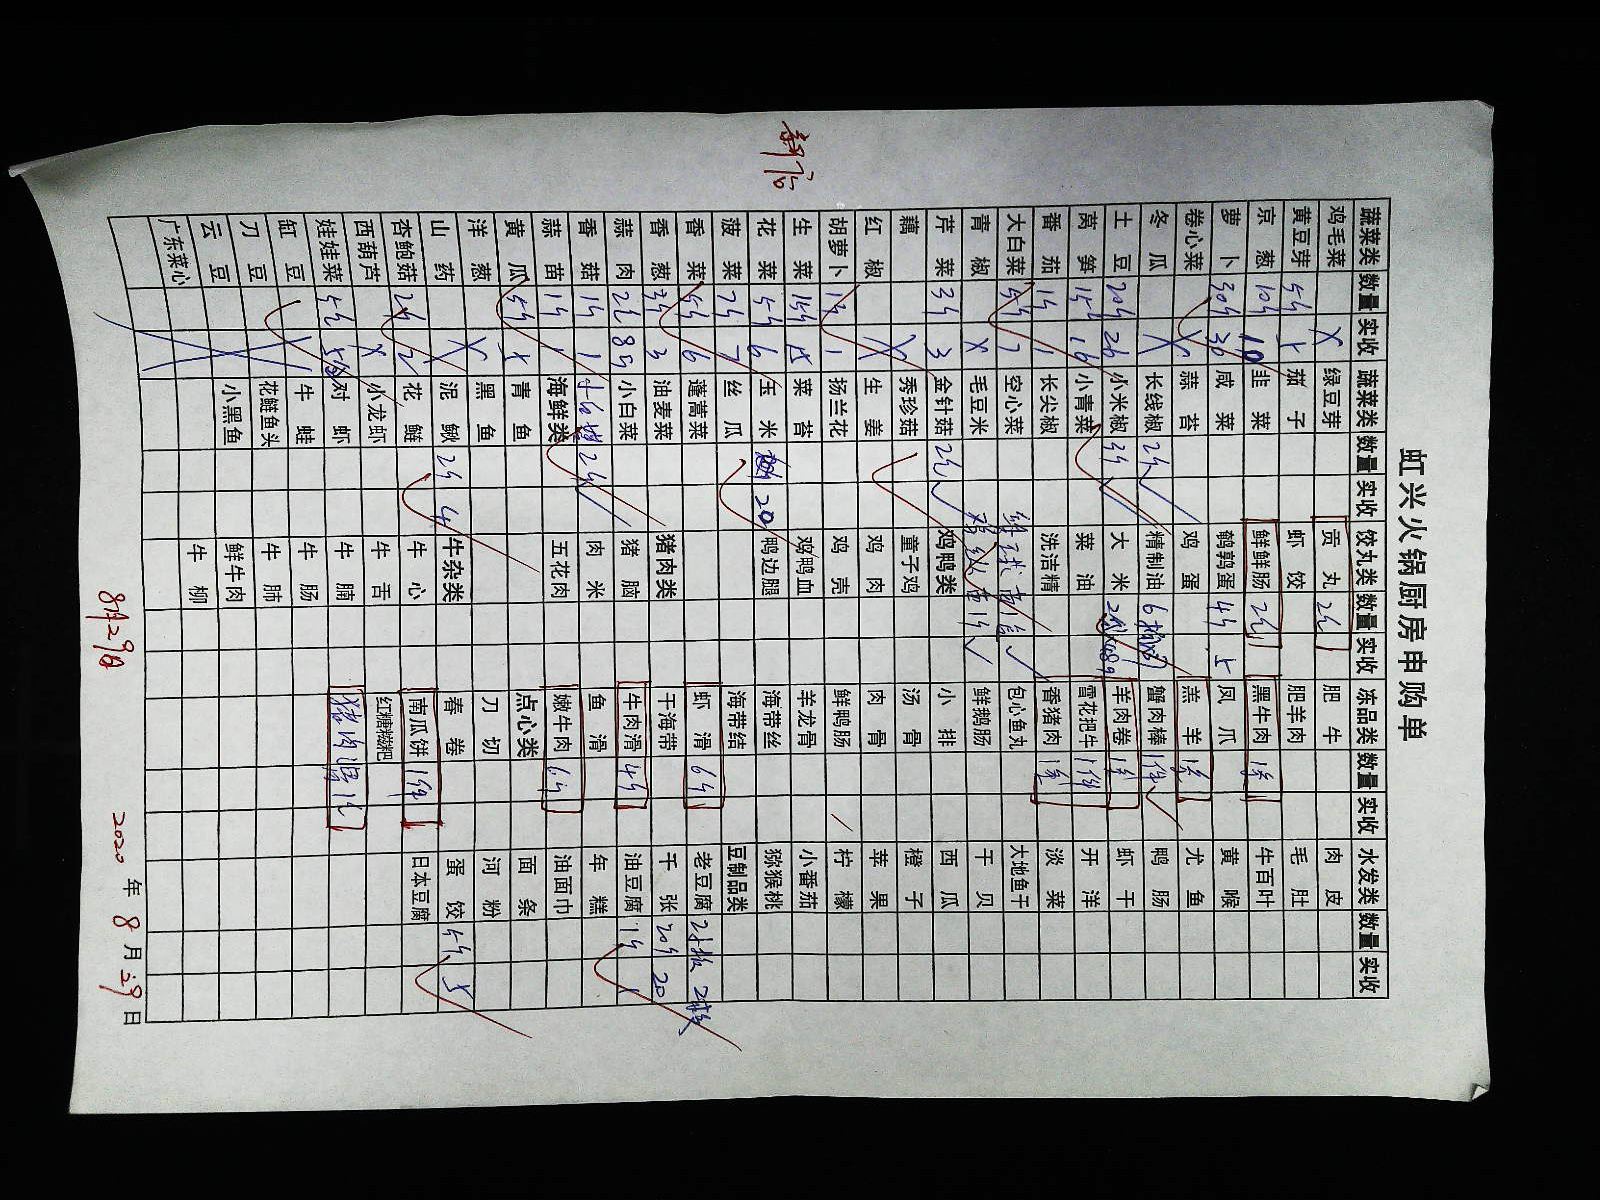 新店
虹兴火锅厨房申购单
蔬菜类 数量 实收 蔬菜类 数量 实收 饺丸类 数量 实收 冻品类 数量 实收 水发类 数量 实收
鸡毛菜 X 绿豆芽 贡丸 2包 肥牛 肉皮
黄豆芽 5斤 5 茄子 虾饺 肥羊肉 毛肚
京葱 10斤 10 韭菜 鲜鲜肠 2包 黑牛肉 1条 牛百叶
萝卜 30斤 30 咸菜 鹌鹑蛋 4斤 5 凤爪 黄喉
卷心菜 X 蒜苔 鸡蛋 羔羊 1条 尤鱼
冬瓜 X 长线椒 2斤 精制油 6桶 蟹肉棒 1件 鸭肠
土豆 20斤 26 小米椒 3斤 大米 羊肉卷 1条 虾干
莴笋 15斤 16 小青菜 菜油 雪花把牛 1件 开洋
番茄 1斤 1 长尖椒 洗洁精 香猪肉 1条 淡菜
大白菜 5斤 7 空心菜 包心鱼丸 大地鱼干
青椒 X 毛豆米 鲜鹅肠 干贝
芹菜 3斤 3 金针菇 2包 鸡鸭类 小排 西瓜
藕 X 秀珍菇 童子鸡 汤骨 橙子
红椒 X 生姜 鸡肉 肉骨 苹果
胡萝卜 1斤 1 扬兰花 鸡壳 鲜鸭肠 柠檬
生菜 15斤 15 菜苔 鸡鸭血 羊龙骨 小番茄
花菜 5斤 6 玉米 20 鸭边腿 海带丝 猕猴桃
菠菜 7斤 7 丝瓜 海带结 豆制品类
香菜 5斤 6 蓬蒿菜 虾滑 6斤 老豆腐 2板 2板
香葱 3斤 3 油麦菜 猪肉类 干海带 千张 20斤 20
蒜肉 2包 8斤 小白菜 猪脑 牛肉滑 4斤 油豆腐 1斤 1
香菇 1斤 1 2包 肉米 鱼滑 年糕
蒜苗 1斤 1 海鲜类 五花肉 嫩牛肉 6斤 油面巾
黄瓜 5斤 5 青鱼 点心类 面条
洋葱 X 黑鱼 刀切 河粉
山药 X 泥鳅 2斤 4 牛杂类 春卷 蛋饺 5斤 5
杏鲍菇 2斤 2 花鲢 牛心 南瓜饼 1件 日本豆腐
西葫芦 X 小龙虾 牛舌 红糖糍粑
娃娃菜 5包 5包 对虾 牛腩 猪肉滑 1包
缸豆 X 牛蛙 牛肠
刀豆 X 花鲢鱼头 牛肺
云豆 X 小黑鱼 鲜牛肉
广东菜心 X 牛柳
8月29日 2020年8月29日